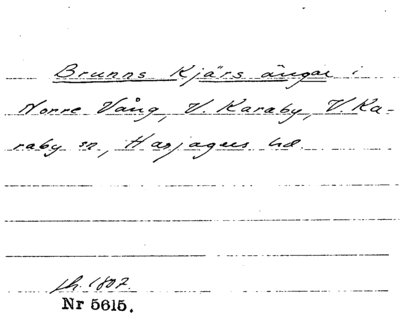 Brunns Kjärs ängar i
Norre Vång, V. Karaby, V. Ka-
raby sn, Harjagers hd.
sh. 1807.
Nr 5615.